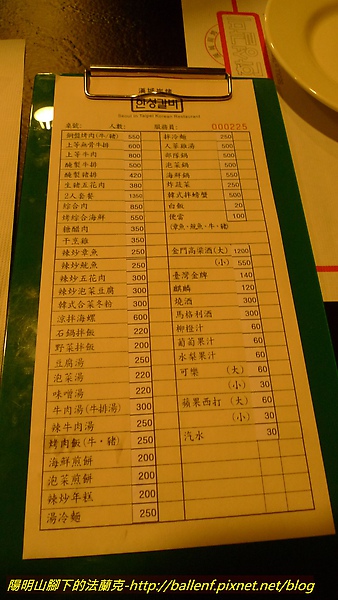 漢城炭烤
한성갈비
Seoul in Taipei Korean Restaurant
桌號： 人數： 服務員： 000225
銅盤烤肉(牛/豬) 550
上等無骨牛排 600
上等牛肉 800
醃製牛排 500
醃製豬排 420
生豬五花肉 380
2人套餐 1350
綜合肉 850
烤綜合海鮮 550
糖醋肉 350
干烹雞 350
辣炒章魚 250
辣炒魷魚 250
辣炒五花肉 350
辣炒泡菜豆腐 300
韓式合菜冬粉 300
涼拌海螺 600
石鍋拌飯 220
野菜拌飯 200
豆腐湯 250
泡菜湯 220
味噌湯 220
牛肉湯(牛排湯) 300
辣牛肉湯 250
烤肉飯(牛，豬) 250
海鮮煎餅 200
泡菜煎餅 200
辣炒年糕 200
湯冷麵 250
拌冷麵 250
人蔘雞湯 500
部隊鍋 500
泡菜鍋 500
海鮮鍋 550
炸菽菜 250
韓式拌螃蟹 500
白飯 20
便當 100
(章魚、魷魚、牛、豬)
金門高梁酒(大) 1200
(小) 550
臺灣金牌 140
麒麟 120
燒酒 300
馬格利酒 300
柳橙汁 60
葡萄果汁 60
水梨果汁 60
可樂 (大) 60
(小) 30
蘋果西打 (大) 60
(小) 30
汽水 30
陽明山腳下的法蘭克-http://ballenf.pixnet.net/blog